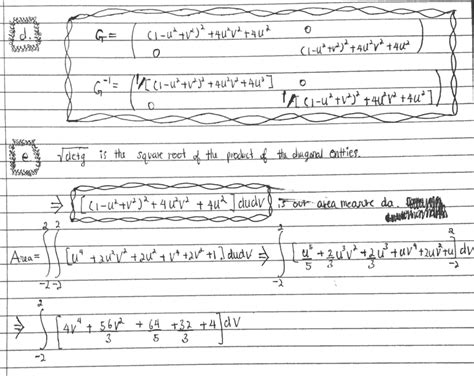 d. G = ( (1-u²+v²)² + 4u²v² + 4u²   0
0   (1-u²+v²)² + 4u²v² + 4u² )
G⁻¹ = ( 1/[(1-u²+v²)² + 4u²v² + 4u²]   0
0   1/[(1-u²+v²)² + 4u²v² + 4u²] )
e. √detg is the square root of the product of the diagonal entries.
⇒ [(1-u²+v²)² + 4u²v² + 4u²] dudv is our area measure da.
Area = ∫₋₂² ∫₋₂² [u⁴ + 2u²v² + 2u² + v⁴ + 2v² + 1] dudv ⇒ ∫₋₂² [u⁵/5 + 2/3 u³v² + 2/3 u³ + uv⁴ + 2uv² + u]₋₂² dv
⇒ ∫₋₂² [4v⁴ + 56v²/3 + 64/5 + 32/3 + 4] dv